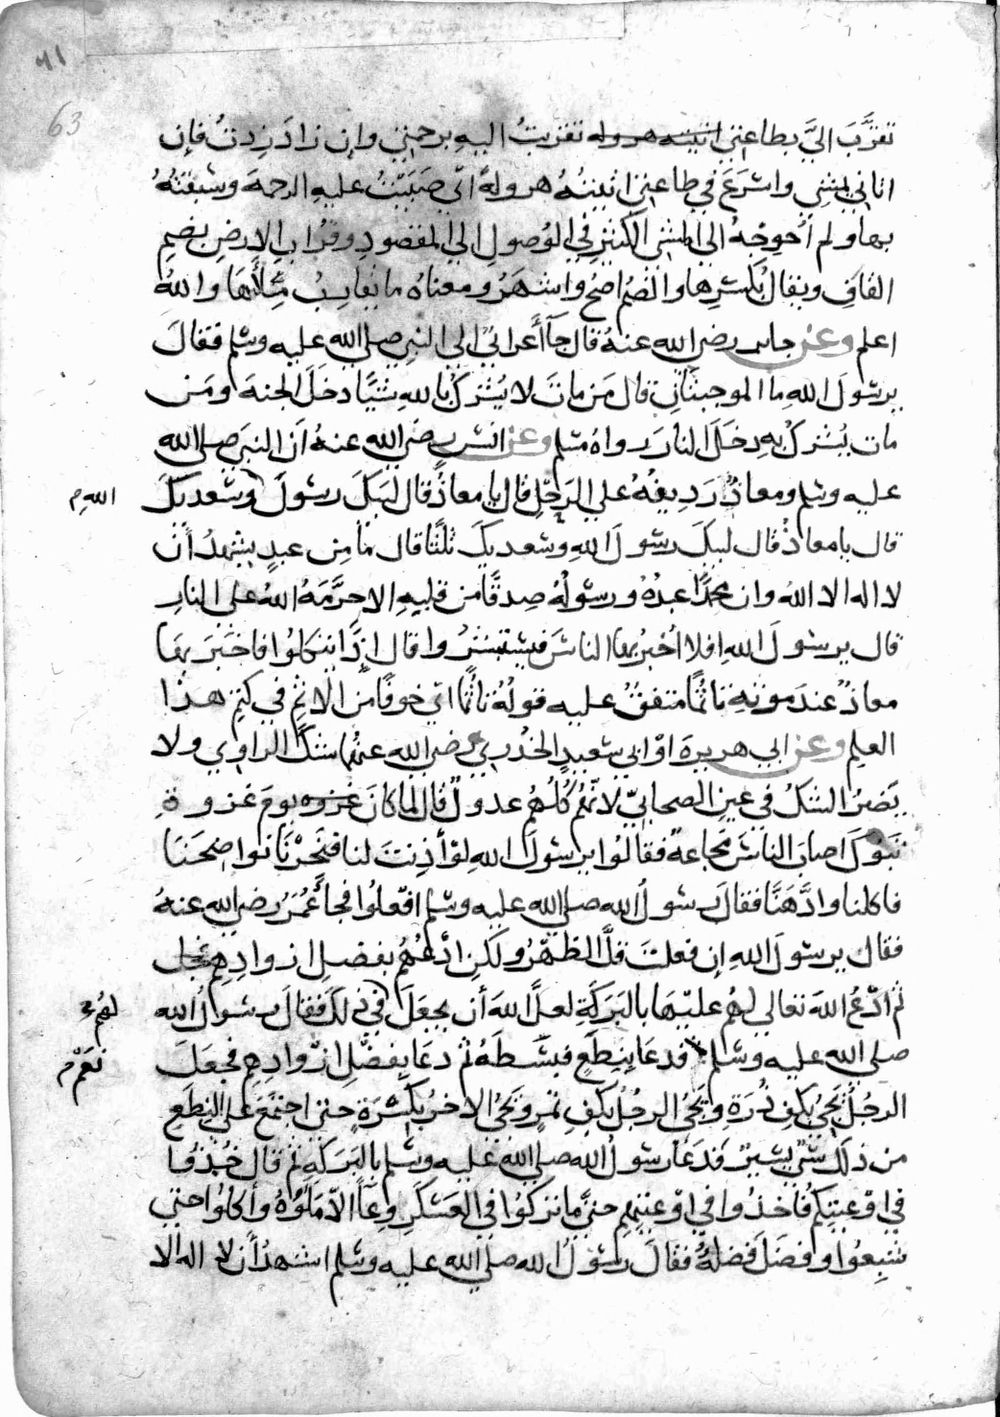 ٦١
63
تقرَّبَ اليَّ بطاعتي اتيته هروله تقربتُ اليهِ برحمتي وان زادَ زِدتُ فإن
اتاني يمشي واسْرَعَ في طاعتي اتيتُهُ هرولةً اي صَبَبْتُ عليه الرحمةَ وسبقتُهُ
بها ولم أُحوِجْهُ الى المشي الكثيرِ في الوُصولِ الى المقصودِ وقُرابِ الارضِ بضمِ
القافِ ويقالُ بكسْرِها والضمُ اصحُ واشهَرُ ومعناهُ ما يقارِبُ مِلأَهَا واللهُ
اعلم وعن جابر رضي الله عنهُ قال جآ أَعرابيٌ الي النبيِ صلى الله عليه وسلم فقالَ
يرسُولَ اللهِ ما الموجبتانِ قال مَن ماتَ لا يُشْركُ باللهِ شيًا دخَلَ الجنةَ ومَن
مات يُشركُ بهِ دخَلَ النارَ رواهُ مسلم وعن انس رضي الله عنهُ اَن النبيَ صلى الله
عليه وسلم ومعاذٌ رَدِيفُهُ علي الرَحْلِ قال يا معاذُ قال لبيكَ رسُولَ وسْعديكَ
اللهِ م
قال يا معاذُ قال لبيكَ رسُولَ اللهِ وسْعديكَ ثلثًا قال ما مِن عبدٍ يشهدُ أن
لا اله الا اللهُ وان محمدًا عبدُهُ ورسُولُهُ صِدقًا من قلبِهِ الا حرَّمَهُ اللهُ على النارِ
قال يرسُولَ اللهِ افلا اُخبِرُ بها الناسَ فيستبشرُوا قال اِذًا يتكلوُا فاخبَرَ بها
معاذٌ عندَ موتِهِ تاثُّمًا متفقٌ عليه قولُهُ تاثُّمًا اي خوفًا من الاثمِ في كتمِ هذا
العلمِ وعن ابي هريرةَ اوْ ابي سَعيدٍ الخُدْريِ رضي الله عنهُما شكَّ الراوِي ولا
يَضرُ الشكُ في عينِ الصحابيّ لانّهُم كُلُّهُم عدولٌ قال لما كانَ غزوه يومَ غزوةِ
تبُوكَ اصابَ الناسَ مجاعةٌ فقالُوا يرسُولَ اللهِ لوْ أذِنتَ لنا فنحَرْنَا نواضِحَنَا
فاكلنا وادَّهَنَّا فقالَ رسُولُ الله صلى الله عليه وسلم افْعلُوا فجاَ عُمَرُ رضي الله عنهُ
فقال يرسُولَ اللهِ إن فعلتَ قلَّ الظَهْرُ ولكن ادْعُهُم بفضلِ ازوادِهِم
ثم ادْعُ اللهَ تعالى لهُم عليْهَا بالبَرَكةِ لعلَّ اللهَ أن يجعَلَ في ذلكَ فقالَ رسُولُ الله
لهُم
صلى الله عليه وسلم فدعَا بنِطَعٍ فبسَطَهُ ثم دعَا بفضْلِ ازْوادِهِم فجعَلَ
نعَمْ م
الرجُلُ يجيُ بكفِ ذُرَةٍ ويجيُ الرجُلُ بكفِ تمرٍ ويجيُ الاخرُ بكِسْرَةٍ حتى اجتمَعَ على النِطَعِ
من ذلكَ شيٌ يَسيرٌ فدعَا رسُولُ الله صلى الله عليه وسلم بالبَرَكةِ ثم قال خُذوا
في اوْعيتِكُم فاخذُوا في اوْعيتِهِم حتىَّ ما تركُوا في العَسْكرِ وعاَءً الّا مَلَؤُهُ واكلُوا حتى
شبِعُوا وفضَلَ فضلةٌ فقال رسُولُ الله صلى الله عليه وسلم اشهدُ أن لا اله الا